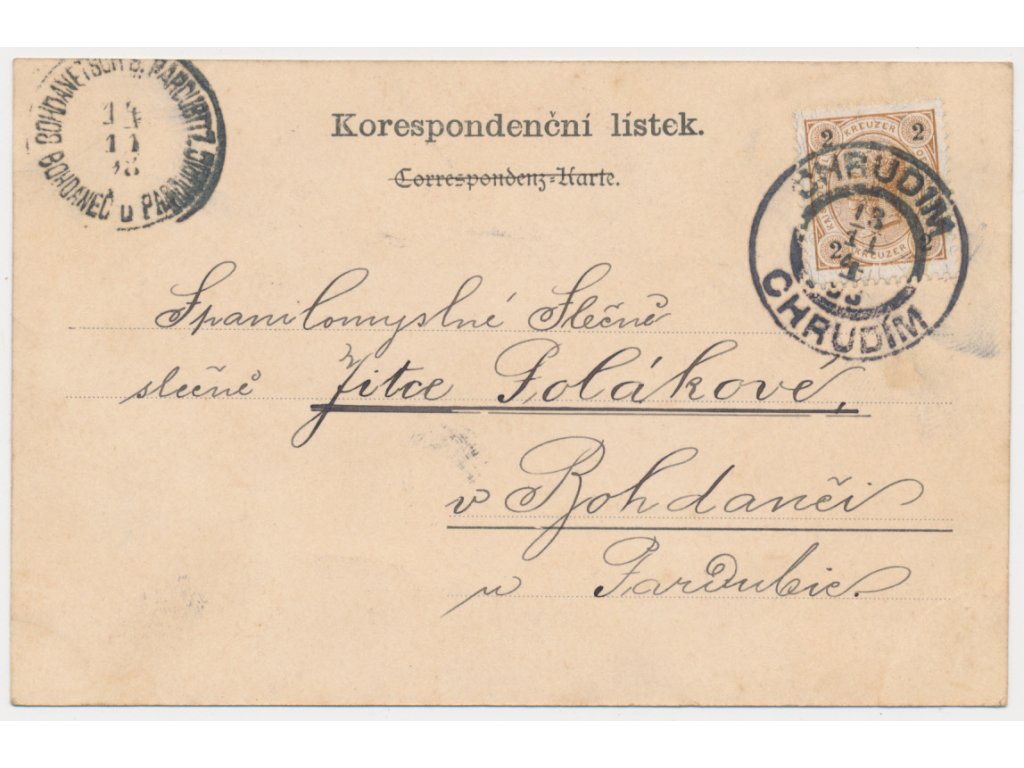 BOHDANETSCH B. PARDUBITZ.
14
11
98
BOHDANEČ u PARDUBIC
Korespondenční lístek.
Correspondenz-Karte.
2 KREUZER 2
KREUZER
CHRUDIM
13
11
98
CHRUDÍM
Spanilomyslné Slečně
slečně Jitce Polákové,
v Bohdanči
u Pardubic.